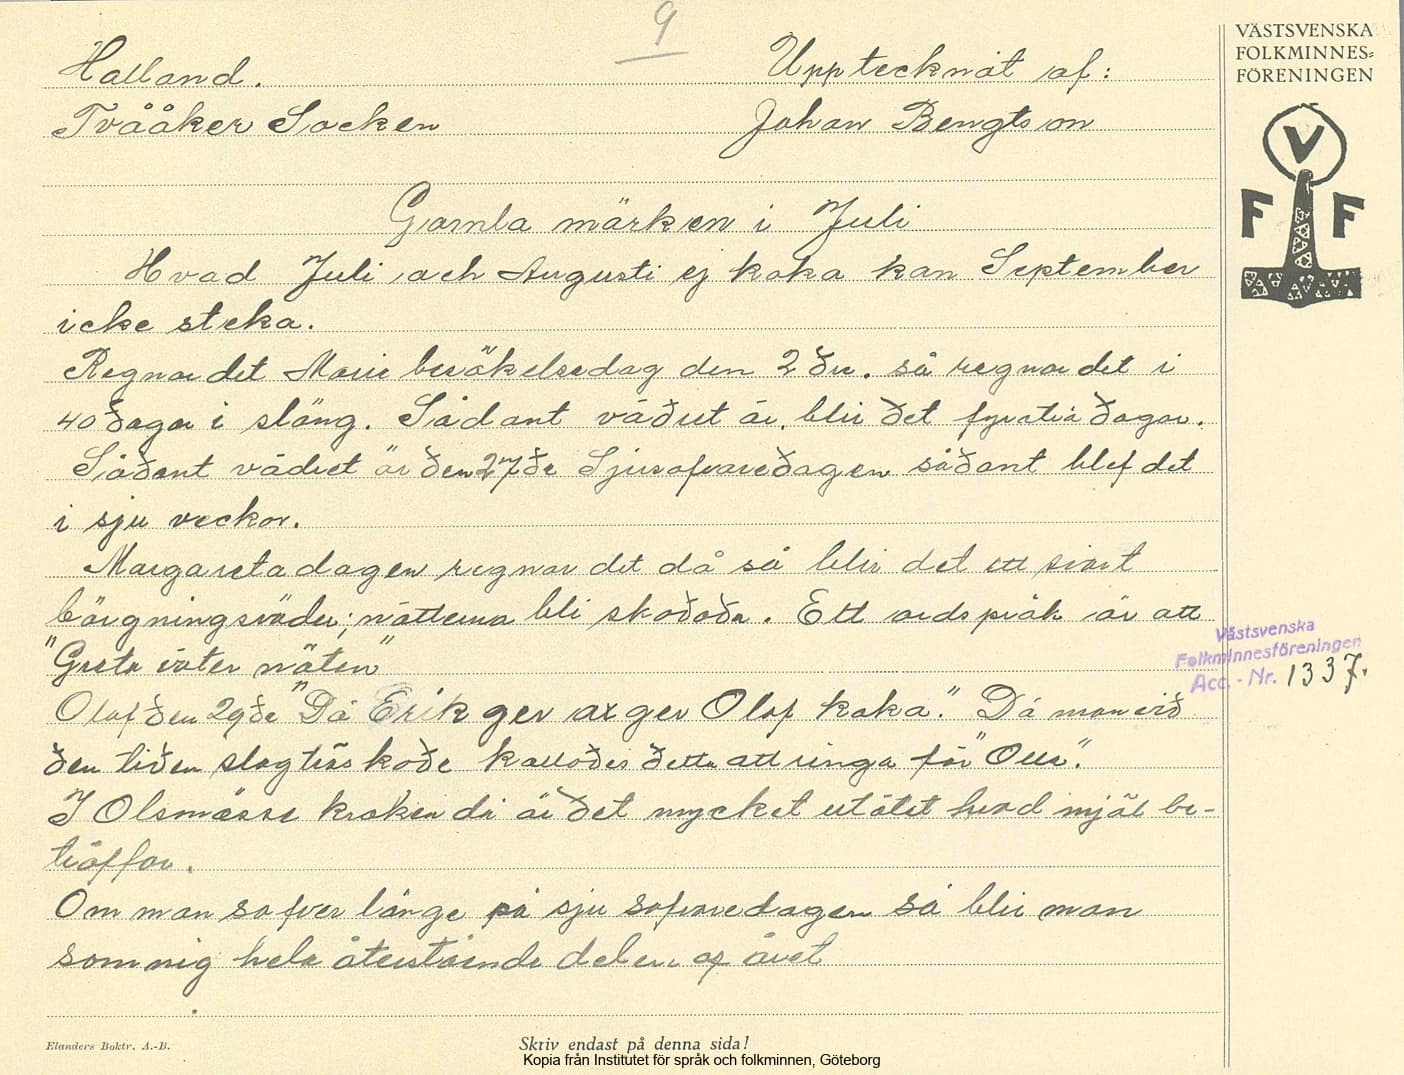 9
Halland.
Upptecknat af:
Tvååker Socken
Johan Bengtson
VÄSTSVENSKA
FOLKMINNES=
FÖRENINGEN
V
F F
Gamla märken i Juli
Hvad Juli och Augusti ej koka kan September
icke steka.
Regnar det Marie besökelsedag den 2 dre. så regnar det i
40 dagar i släng. Sådant vädret är, blir det fyratiå dagar.
Sådant vädret är den 27de Sjusofvaredagen sådant blef det
i sju veckor.
Margaretadagen regnar det då så blir det ett svårt
bärgningsväder; nätterna bli skadada. Ett ordspråk är att
"Greta väter näten"
Olof den 29de "Då Erik ger ax ger Olof kaka". Då man vid
den tiden slogträskode kallades detta att ringa för "Olle".
I Olsmässe kroken då är det mycket utätet hvad mjöl be-
träffar.
Om man sofver länge på sju sofvaredagen så blir man
sömnig hela återstående delen af året
Västsvenska
Folkminnesföreningen
Acc. - Nr. 1337.
Elanders Boktr. A.-B.
Skriv endast på denna sida!
Kopia från Institutet för språk och folkminnen, Göteborg